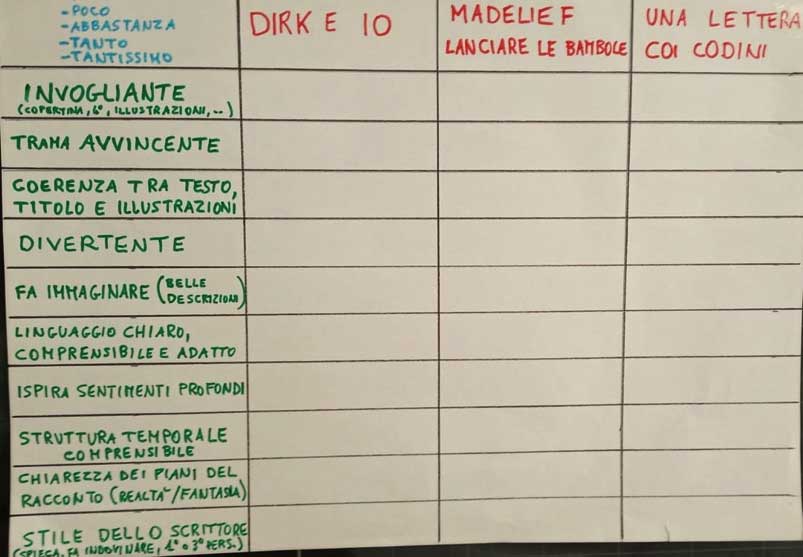 -POCO
-ABBASTANZA
-TANTO
-TANTISSIMO
DIRK E IO
MADELIEF
LANCIARE LE BAMBOLE
UNA LETTERA
COI CODINI
INVOGLIANTE
(COPERTINA, 4°, ILLUSTRAZIONI, ..)
TRAMA AVVINCENTE
COERENZA TRA TESTO,
TITOLO E ILLUSTRAZIONI
DIVERTENTE
FA IMMAGINARE (BELLE
DESCRIZIONI)
LINGUAGGIO CHIARO,
COMPRENSIBILE E ADATTO
ISPIRA SENTIMENTI PROFONDI
STRUTTURA TEMPORALE
COMPRENSIBILE
CHIAREZZA DEI PIANI DEL
RACCONTO (REALTA'/FANTASIA)
STILE DELLO SCRITTORE
(SPIEGA, FA INDOVINARE, 1° o 3° PERS.)